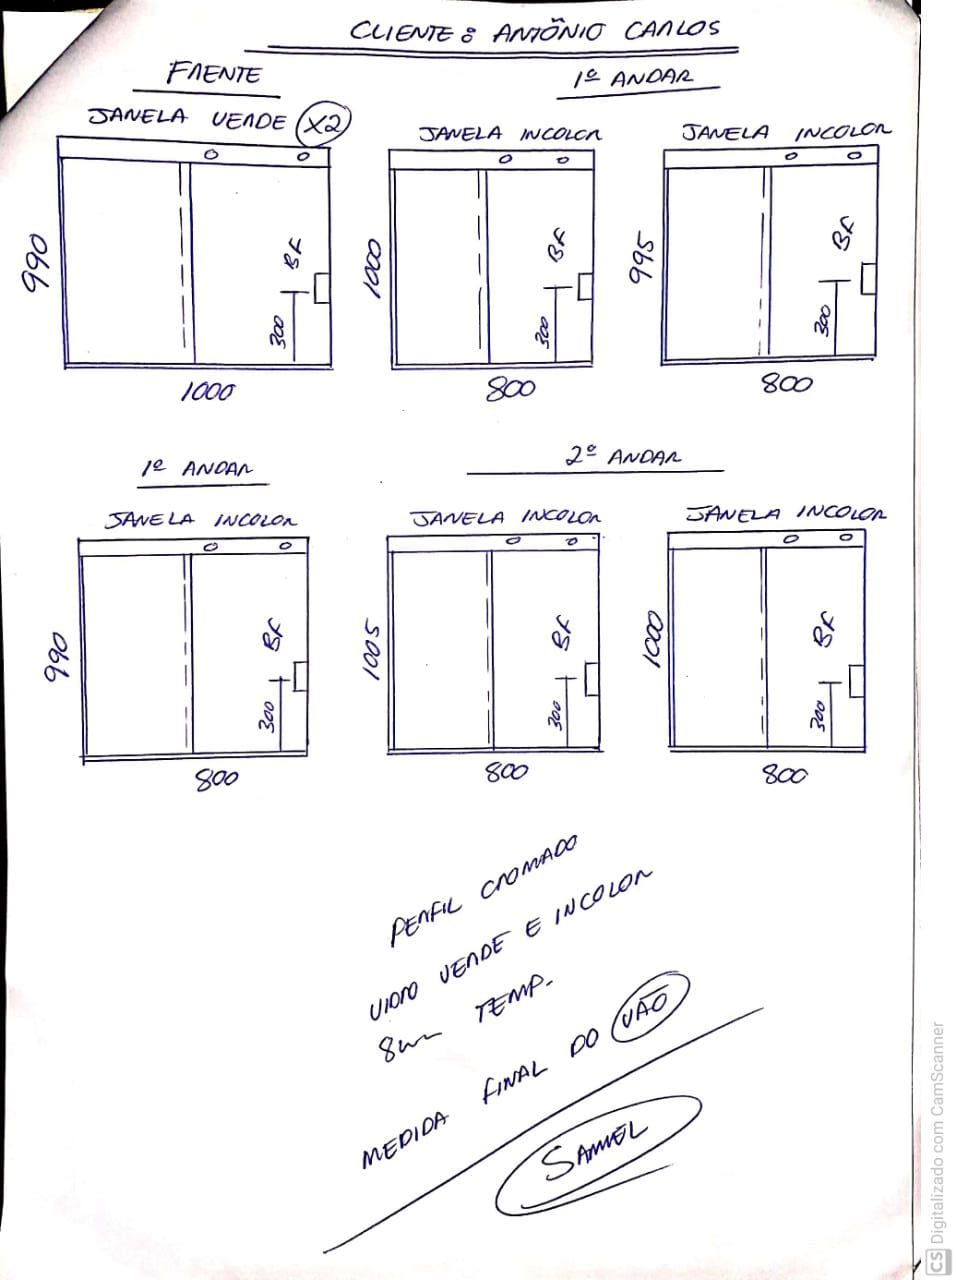 CLIENTE: ANTÔNIO CARLOS
FRENTE
1º ANDAR
JANELA VERDE X2
JANELA INCOLOR
JANELA INCOLOR
990
BF
300
1000
1000
BF
300
800
995
BF
300
800
1º ANDAR
2º ANDAR
JANELA INCOLOR
JANELA INCOLOR
JANELA INCOLOR
990
BF
300
800
1005
BF
300
800
1000
BF
300
800
PERFIL CROMADO
VIDRO VERDE E INCOLOR
8mm TEMP.
MEDIDA FINAL DO VÃO
SAMUEL
CS Digitalizado com CamScanner